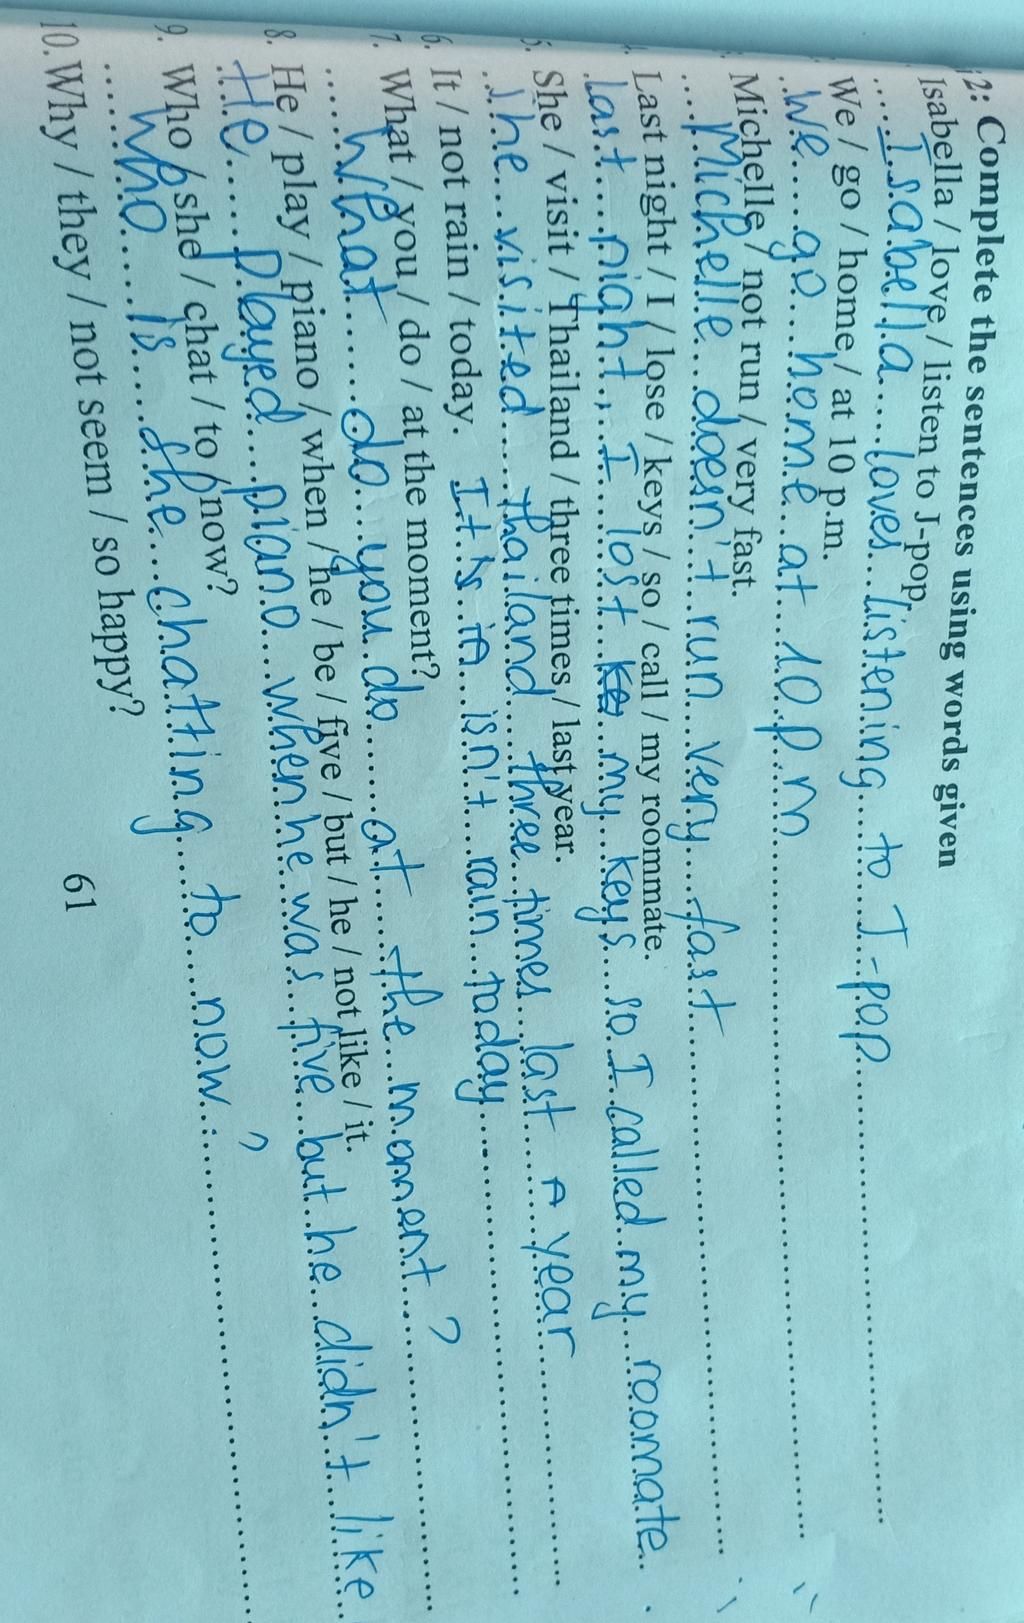 2: Complete the sentences using words given
Isabella / love / listen to J-pop.
Isabella loves listening to J-pop
We / go / home / at 10 p.m.
We go home at 10 pm
Michelle / not run / very fast.
Michelle doesn't run very fast
Last night / I / lose / keys / so / call / my roommate.
Last night, I lost my keys so I called my roomate.
5. She / visit / Thailand / three times / last year.
She visited thailand three times last year
6. It / not rain / today. It isn't rain today
7. What / you / do / at the moment?
What do you do at the moment ?
8. He / play / piano / when / he / be / five / but / he / not like / it.
He played piano when he was five but he didn't like
9. Who / she / chat / to / now?
Who is she chatting to now ?
10. Why / they / not seem / so happy?
61